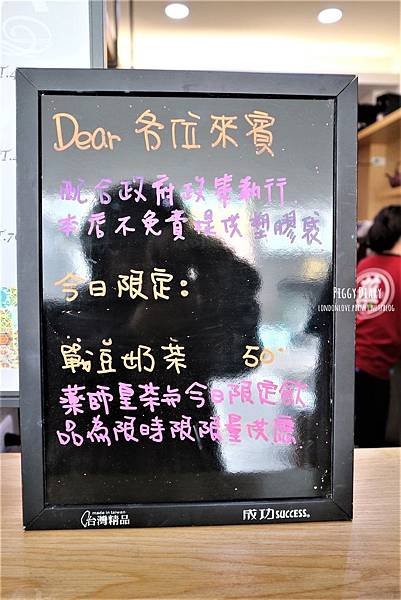 Dear 各位來賓
配合政府政策執行
本店不免費提供塑膠袋
今日限定:
戰豆奶茶 50
藥師皇茶与今日限定飲
品為限時限限量供應
made in taiwan
台灣精品
成功SUCCESS®
PIGGY DIARY